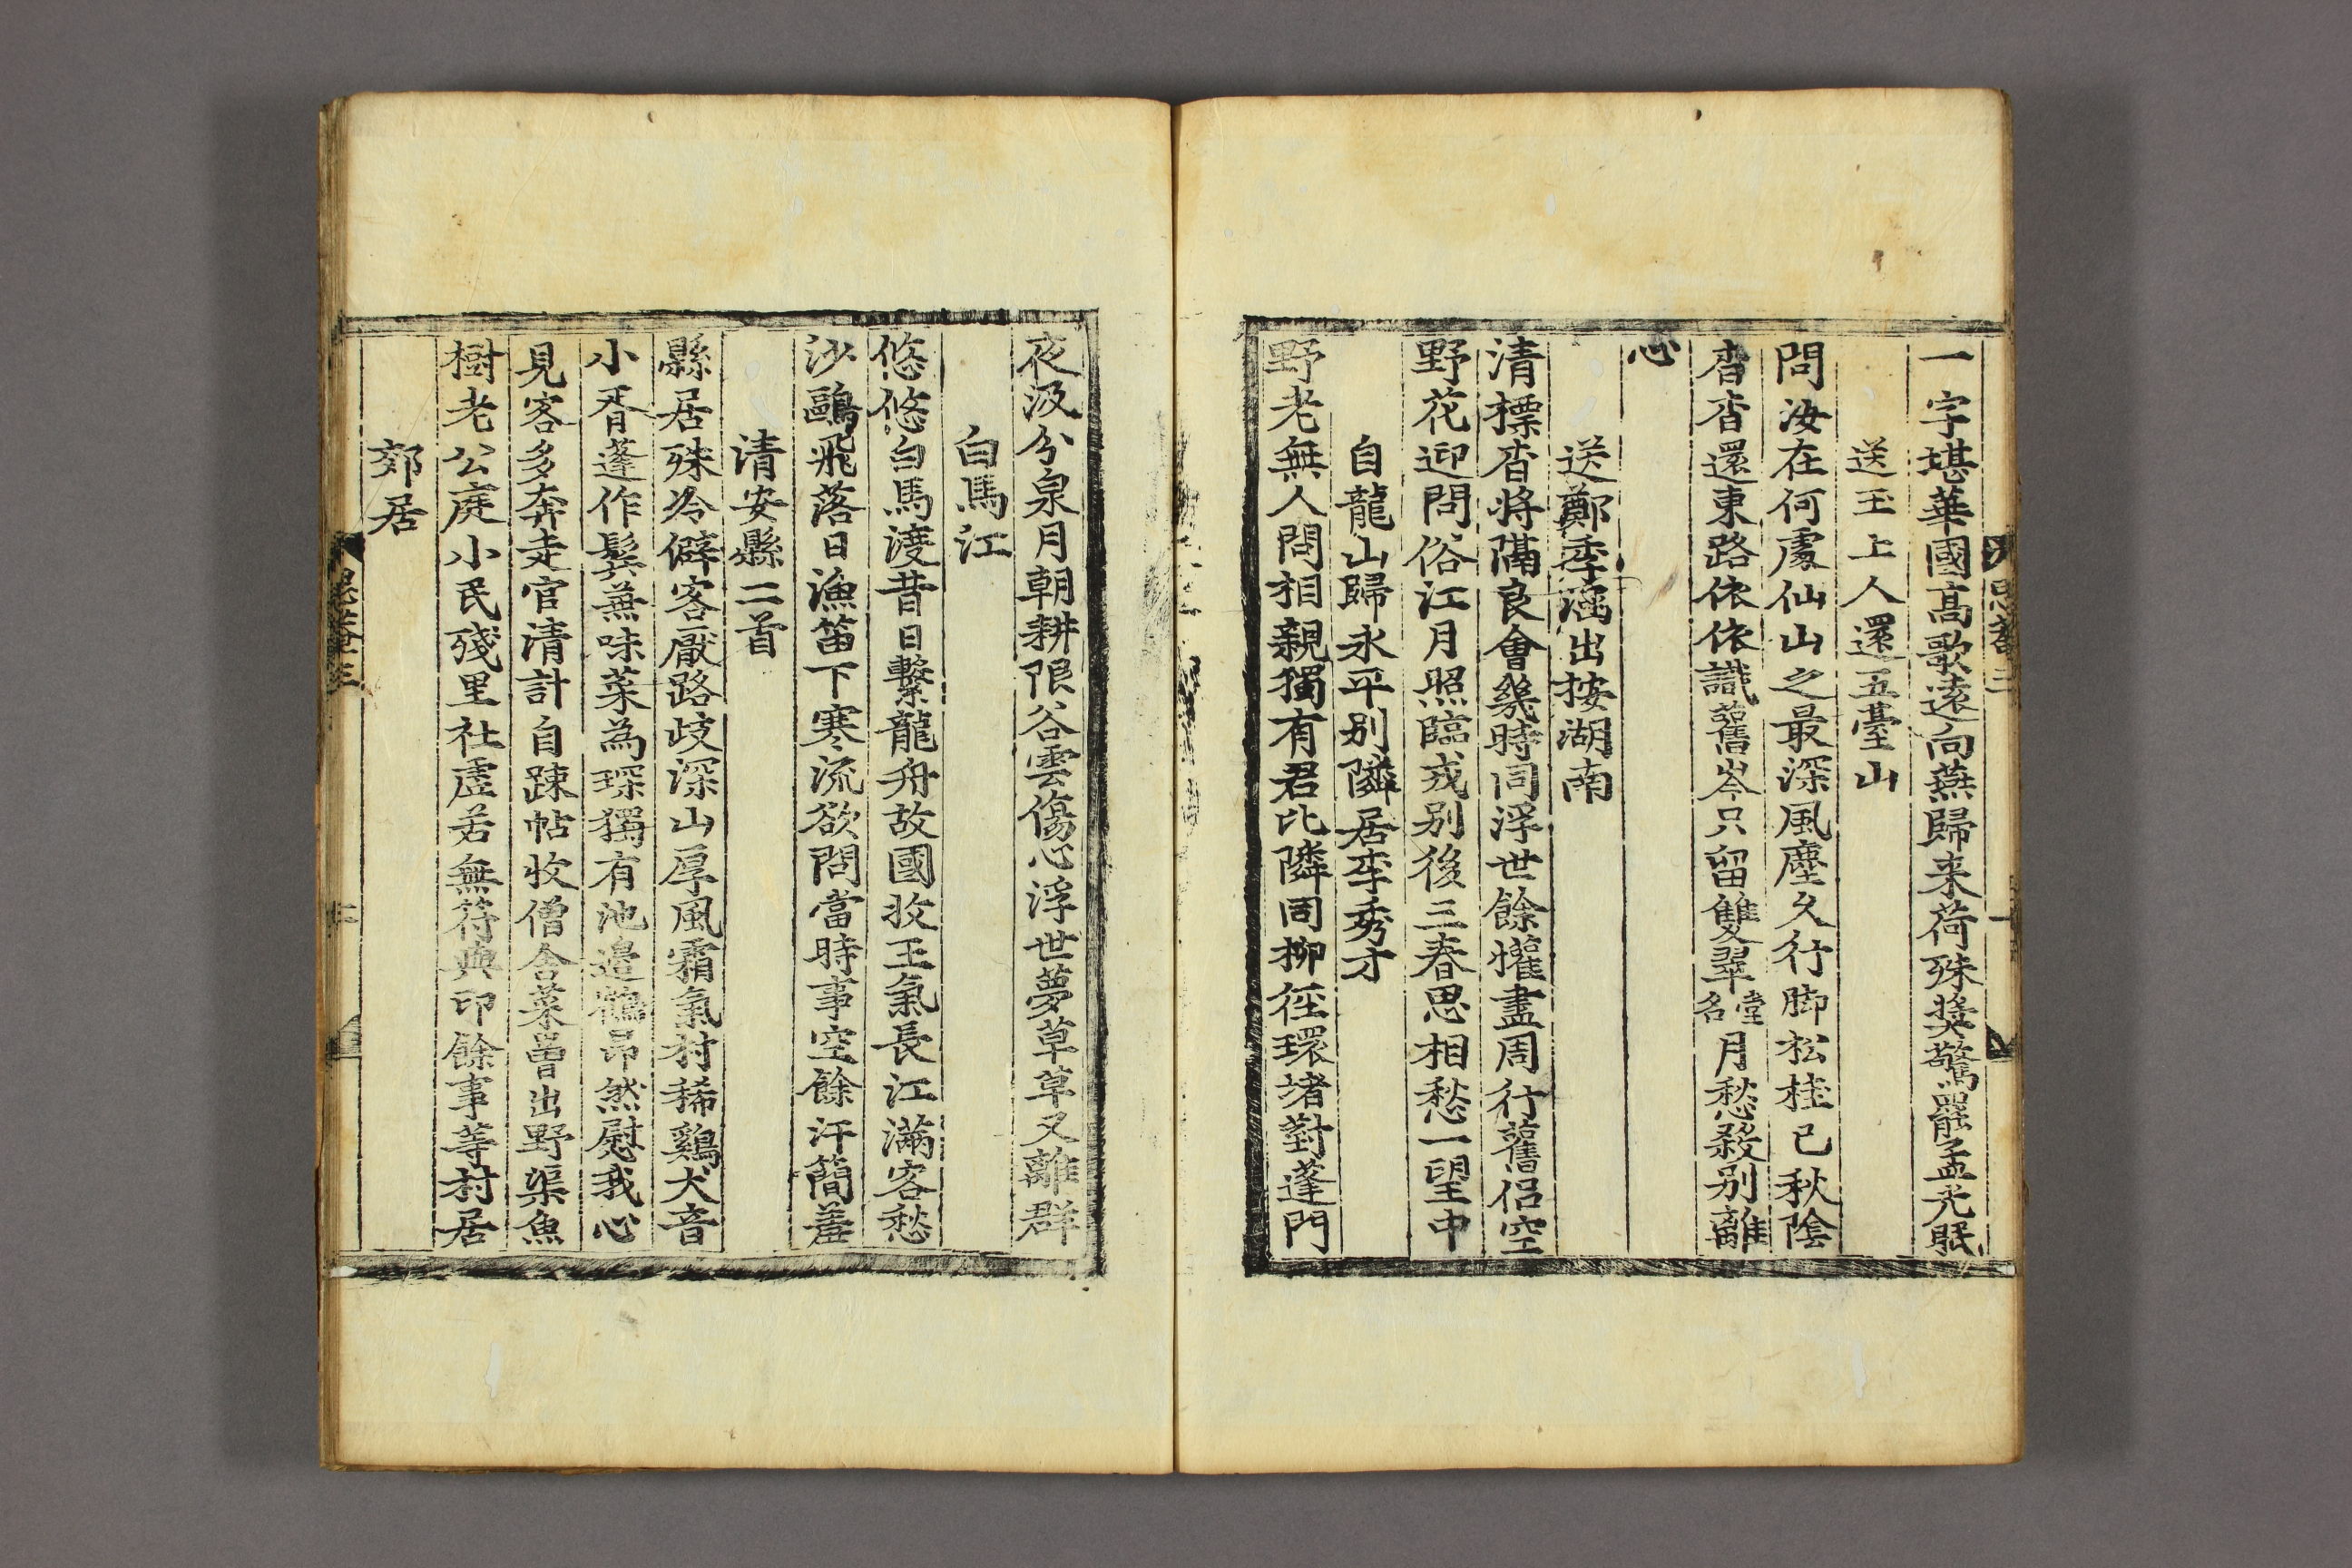 一字堪華國高歌遠向燕歸来荷殊奬驚罷孟光眠
送玉上人還五臺山
問汝在何處仙山之最深風塵久行脚松桂已秋陰
杳杳還東路依依識舊岑只留雙翠堂名月愁殺別離
心
送鄭季涵出按湖南
清標杳將隔良會幾時同浮世餘懽盡周行舊侣空
野花迎問俗江月照臨戎別後三春思相愁一望中
自龍山歸永平別隣居李秀才
野老無人問相親獨有君比隣同柳徑環堵對蓬門
夜汲分泉月朝耕限谷雲傷心浮世夢草草又離群
白馬江
悠悠白馬渡昔日繫龍舟故國收王氣長江滿客愁
沙鷗飛落日漁笛下寒流欲問當時事空餘汗簡羞
清安縣二首
縣居殊冷僻客厭路歧深山厚風霜氣村稀鷄犬音
小胥蓬作鬂蕪味菜為琛獨有池邉鶴昂然慰我心
見客多奔走官清計自踈帖收僧舍菜罾出野渠魚
樹老公庭小民殘里社虛若無符與印餘事等村居
郊居